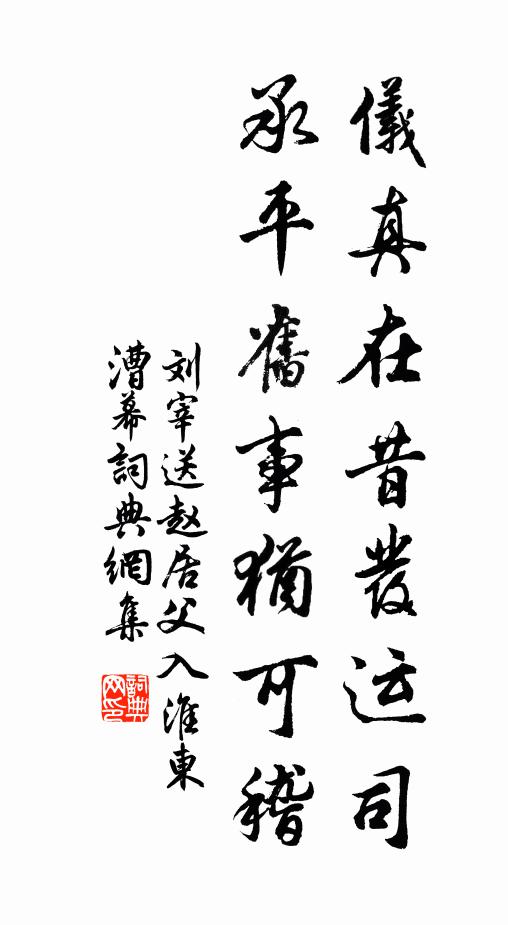 儀真在昔發运司
承平舊事猶可稽
刘宰送赵居父入淮東
漕幕詞典網集
詞典网印